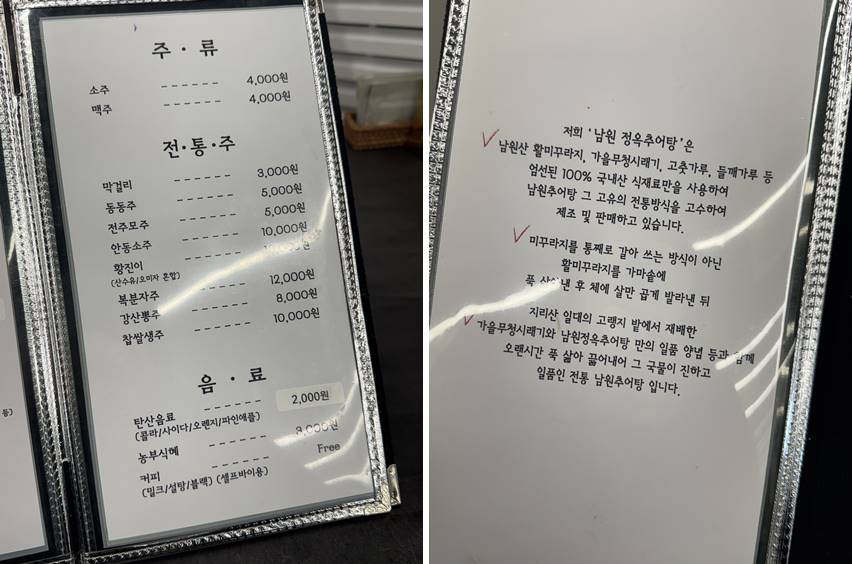 주 · 류
소주 ------ 4,000원
맥주 ------ 4,000원
전·통·주
막걸리 ------ 3,000원
동동주 ------ 5,000원
전주모주 ------ 5,000원
안동소주 ------ 10,000원
황진이 ------
(산수유/오미자 혼합)
복분자주 ------ 12,000원
강산뽕주 ------ 8,000원
찹쌀생주 ------ 10,000원
음 · 료
탄산음료 ------ 2,000원
(콜라/사이다/오렌지/파인애플)
농부식혜 ------
커피 ------ Free
(밀크/설탕/블랙) (셀프바이용)
등)
저희 '남원 정옥추어탕'은
남원산 활미꾸라지, 가을무청시래기, 고춧가루, 들깨가루 등
엄선된 100% 국내산 식재료만을 사용하여
남원추어탕 그 고유의 전통방식을 고수하여
제조 및 판매하고 있습니다.
미꾸라지를 통째로 갈아 쓰는 방식이 아닌
활미꾸라지를 가마솥에
푹 삶아낸 후 체에 살만 곱게 발라낸 뒤
지리산 일대의 고랭지 밭에서 재배한
가을무청시래기와 남원정옥추어탕 만의 일품 양념 등과 함께
오랜시간 푹 삶아 끓어내어 그 국물이 진하고
일품인 전통 남원추어탕 입니다.